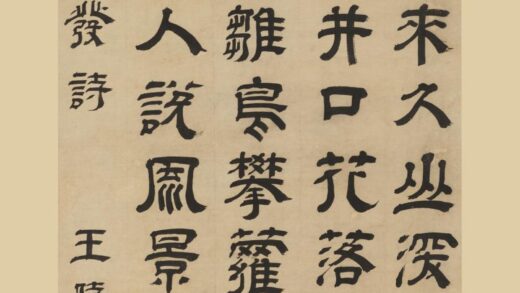 來久坐深
井口花落
雛鳥攀蘿
人說風景
發詩 王時